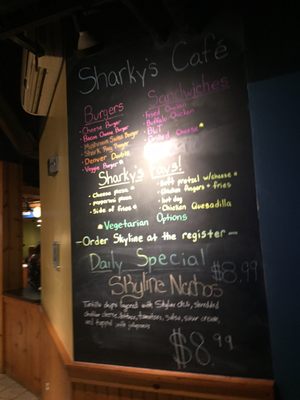 Sharky's Café
Burgers
• Cheese Burger
• Bacon Cheese Burger
• Mushroom Swiss Burger
• Shark Bay Burger
• Denver Double
• Veggie Burger *
Sandwiches
• Fried Chicken
• Buffalo Chicken
• BLT
• Grilled Cheese *
Sharky's Favs!
• Cheese pizza *
• pepperoni pizza
• Side of fries *
• Soft pretzel w/cheese *
• Chicken fingers + fries
• hot dog
• Chicken Quesadilla
* Vegetarian Options
- Order Skyline at the register -
Daily Special
$8.99
Skyline Nachos
Tortilla chips layered with Skyline chili, shredded
cheddar cheese, tomatoes, salsa, sour cream,
and topped with jalapenos
$8.99